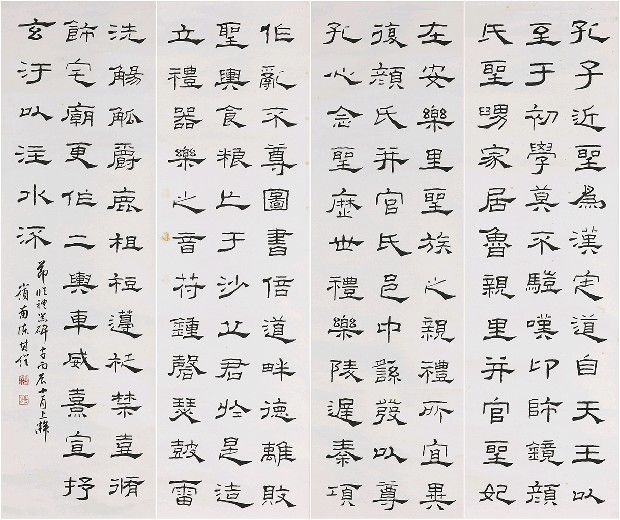 孔子近聖為漢定道自天王以
至于初學莫不驥嘆卬師鏡顔
氏聖舅家居魯親里并官聖妃
在安樂里聖族之親禮所宜異
復顔氏并官氏邑中繇發以尊
孔心念聖歷世禮樂陵遲秦項
作亂不尊圖書倍道畔德離敗
聖輿食粮亡于沙丘君於是造
立禮器樂之音苻鍾磬瑟鼓雷
洗觴觚爵鹿柤梪籩柉禁壼脩
飾宅廟更作二輿車威熹宣抒
玄汙以注水流
節臨禮器碑 丙辰十月上澣
嶺南陳其銓